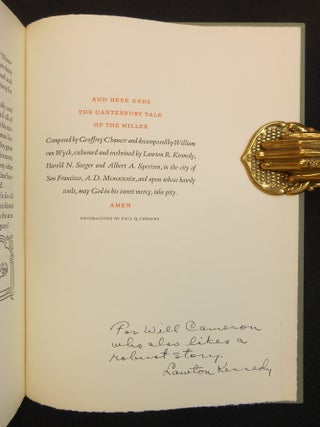 AND HERE ENDS
THE CANTERBURY TALE
OF THE MILLER
Composed by Geoffrey Chaucer and decomposed by William
van Wyck, exhumed and enshrined by Lawton R. Kennedy,
Harold N. Seeger and Albert A. Sperisen, in the city of
San Francisco, A. D. MCMXXXIX, and upon whose bawdy
souls, may God in his sweet mercy, take pity.
AMEN
DECORATIONS BY PAUL Q. FORSTER
For Will Cameron
who also likes a
robust story.
Lawton Kennedy